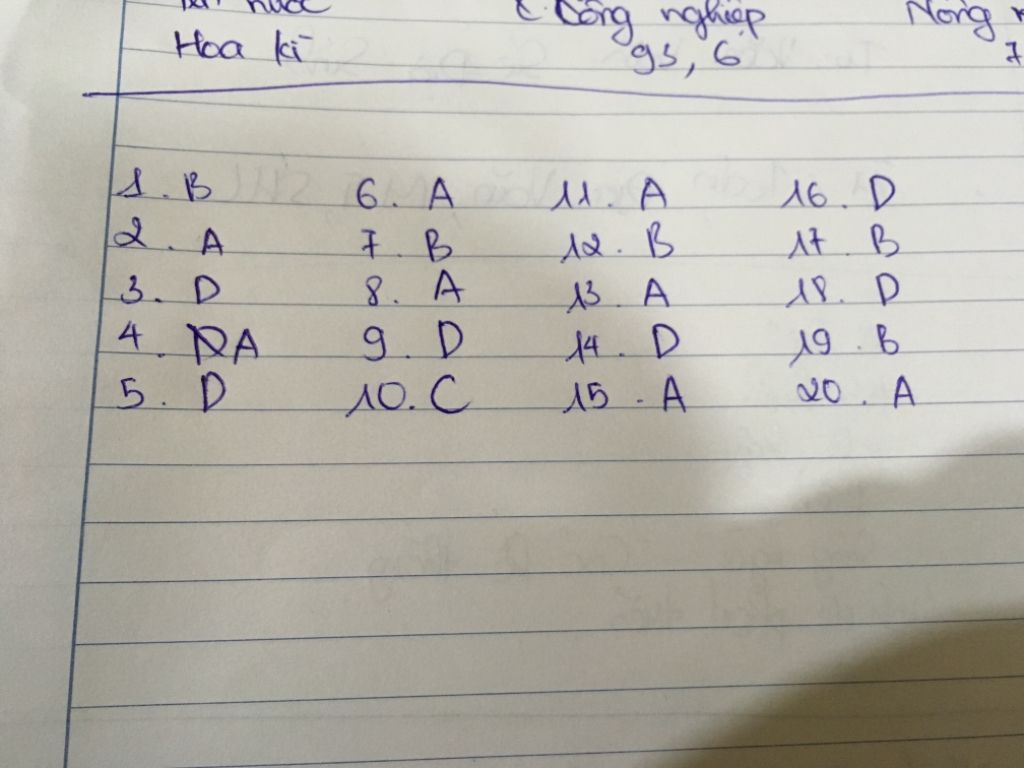 nước C. Công nghiệp Nông
Hoa kì 95, 6 7
1. B 6. A 11. A 16. D
2. A 7. B 12. B 17. B
3. D 8. A 13. A 18. D
4. A 9. D 14. D 19. B
5. D 10. C 15. A 20. A